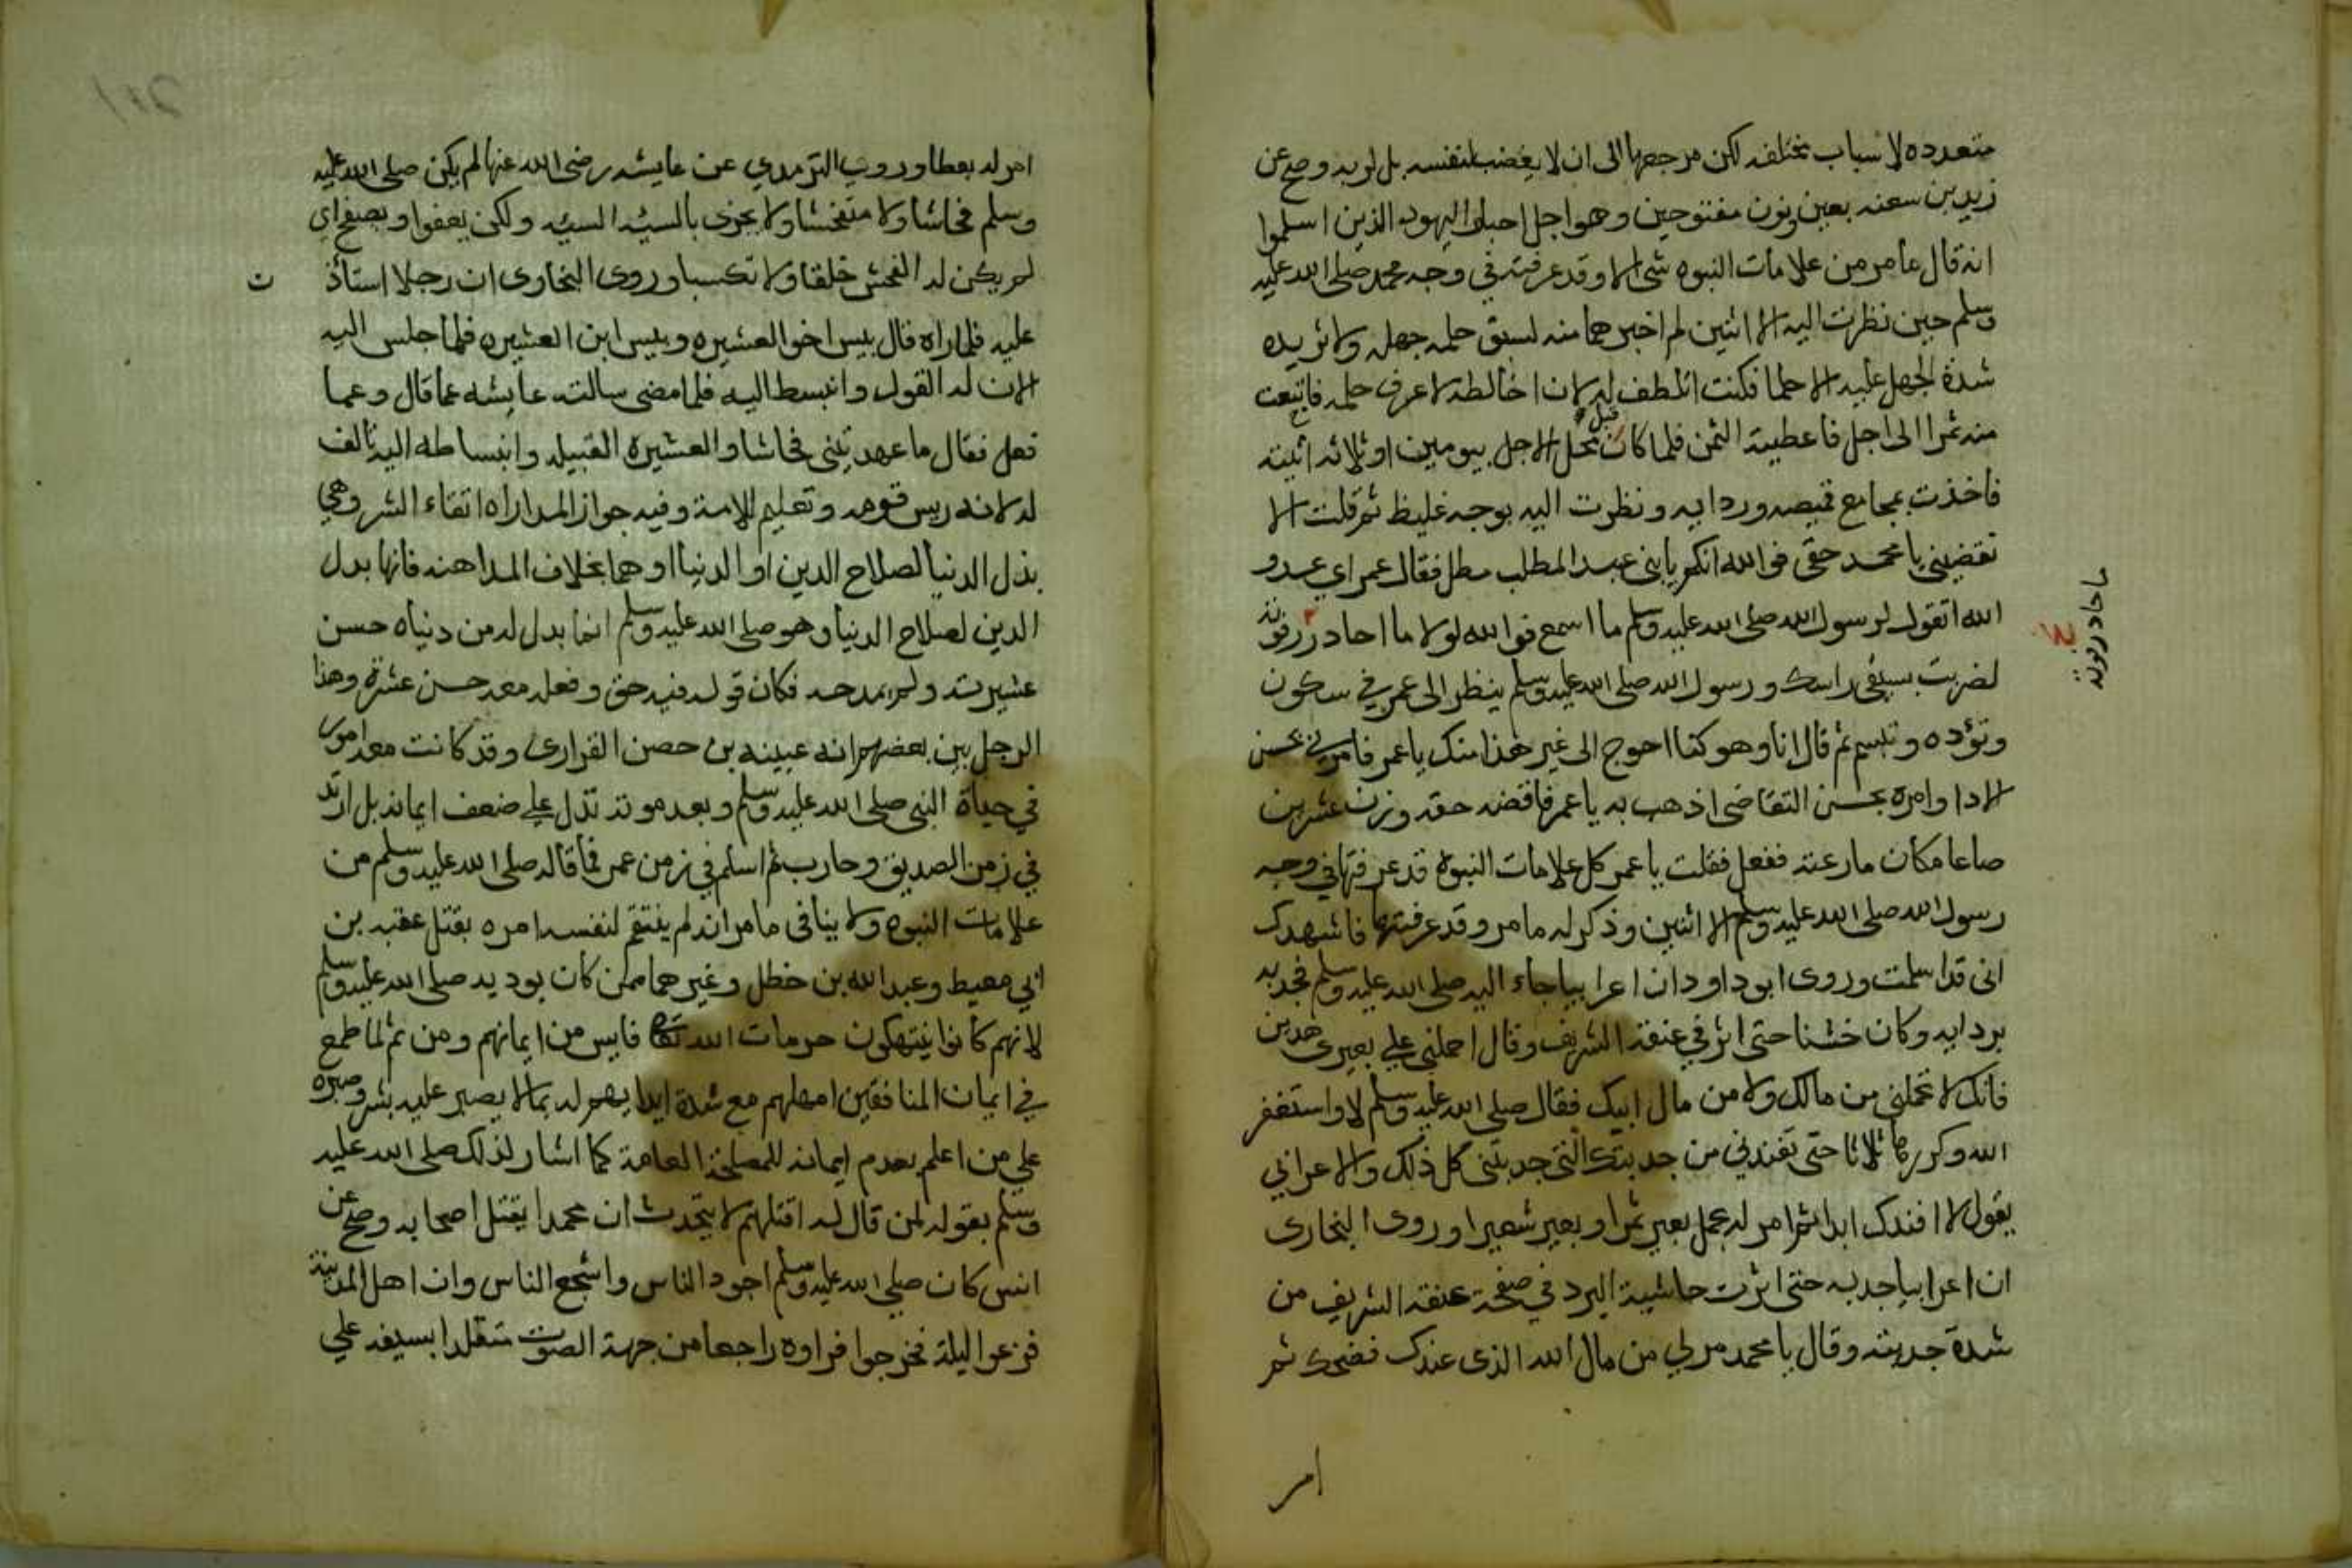 متعدده لاسباب مختلفه لكن مرجعها الى ان لا يغضب لنفسه بل لربه وصح عن
زيد بن سعنه بعين ونون مفتوحين وهو اجل احبار اليهود الذين اسلموا
انه قال ما من علامات النبوه شى الا وقد عرفته في وجه محمد صلى الله عليه
وسلم حين نظرت اليه الا اثنين لم اخبرهما منه لسبق حلمه جهله ولا تزيده
شدة الجهل عليه الا حلما فكنت اتلطف له لان اخالطه لاعرف حلمه فابتعت
منه تمرا الى اجل فاعطيته الثمن فلما كان قبل محل الاجل بيومين او ثلاثه اتيته
فاخذت بمجامع قميصه وردايه ونظرت اليه بوجه غليظ ثم قلت الا
تقضيني يا محمد حقى فوالله انكم يا بنى عبد المطلب مطل فقال عمر اي عدو
الله اتقول لرسول الله صلى الله عليه وسلم ما اسمع فوالله لولا ما احاذر
لضربت بسيفى راسك ورسول الله صلى الله عليه وسلم ينظر الى عمر في سكون
وتؤده وتبسم ثم قال انا وهو كنا احوج الى غير هذا منك يا عمر فامرني بحسن
الادا وامره بحسن التقاضى اذهب به يا عمر فاقضه حقه وزن عشرين
صاعا مكان مارعته ففعل فقلت يا عمر كل علامات النبوة قد عرفتها في وجه
رسول الله صلى الله عليه وسلم الا اثنين وذكر له ما مر وقد عرفتها فاشهدك
انى قد اسلمت وروى ابو داود ان اعرابيا جاء اليه صلى الله عليه وسلم فجذبه
بردايه وكان خشنا حتى اثر في عنقه الشريف وقال احملني على بعيرى هذين
فانك لا تحملني من مالك ولا من مال ابيك فقال صلى الله عليه وسلم لا واستغفر
الله وكررها ثلاثا حتى تفندنى من جذبتك التى جذبتنى كل ذلك والاعرابي
يقول لا افندك ابدا ثم امر له بحمل بعير تمرا وبعير شعيرا وروى البخارى
ان اعرابيا جذبه حتى اثرت حاشية البرد في صفحة عنقه الشريف من
شدة جذبته وقال يا محمد مر لي من مال الله الذى عندك فضحك ثم
امر
امر له بعطا وروى الترمذي عن عايشه رضى الله عنها لم يكن صلى الله عليه
وسلم فحاشا ولا متفحشا ولا يجزى بالسيئه السيئه ولكن يعفوا ويصفح اي
لم يكن له الفحش خلقا ولا تكسبا وروى البخارى ان رجلا استاذ
ن
عليه فلما راه قال بيس اخو العشيره وبيس ابن العشيره فلما جلس اليه
الان له القول وانبسط اليه فلما مضى سالته عايشه عما قال وعما
فعل فقال ما عهدتينى فحاشا والعشيره القبيله وانبساطه اليه تالف
له لانه ريس قومه وتعليم للامة وفيه جواز المداراه اتقاء الشر وهي
بذل الدنيا لصلاح الدين او الدنيا او هما بخلاف المداهنه فانها بدل
الدين لصلاح الدنيا وهو صلى الله عليه وسلم انما بدل له من دنياه حسن
عشيرته ولم يمدحه فكان قوله فيه حق وفعله معه حسن عشرة وهذا
الرجل بين بعضهم انه عيينه بن حصن الفزارى وقد كانت معه امور
في حياة النبى صلى الله عليه وسلم وبعد موته تدل على ضعف ايمانه بل ارتد
في زمن الصديق وحارب ثم اسلم في زمن عمر فما قاله صلى الله عليه وسلم من
علامات النبوه ولا ينافى ما مر انه لم ينتقم لنفسه امره بقتل عقبه بن
ابي معيط وعبد الله بن خطل وغيرهما ممن كان يوديه صلى الله عليه وسلم
لانهم كانوا ينتهكون حرمات الله تعالى فايس من ايمانهم ومن ثم لما طمع
في ايمان المنافقين امهلهم مع شدة ايدايهم له بما لا يصبر عليه بشر وصبره
على من اعلم بعدم ايمانه للمصلحة العامة كما اشار لذلك صلى الله عليه
وسلم بقوله لمن قال له اقتلهم لا يتحدث ان محمدا يقتل اصحابه وصح عن
انس كان صلى الله عليه وسلم اجود الناس واشجع الناس وان اهل المدينة
فزعوا ليلة فخرجوا فراوه راجعا من جهة الصوت متقلدا بسيفه على